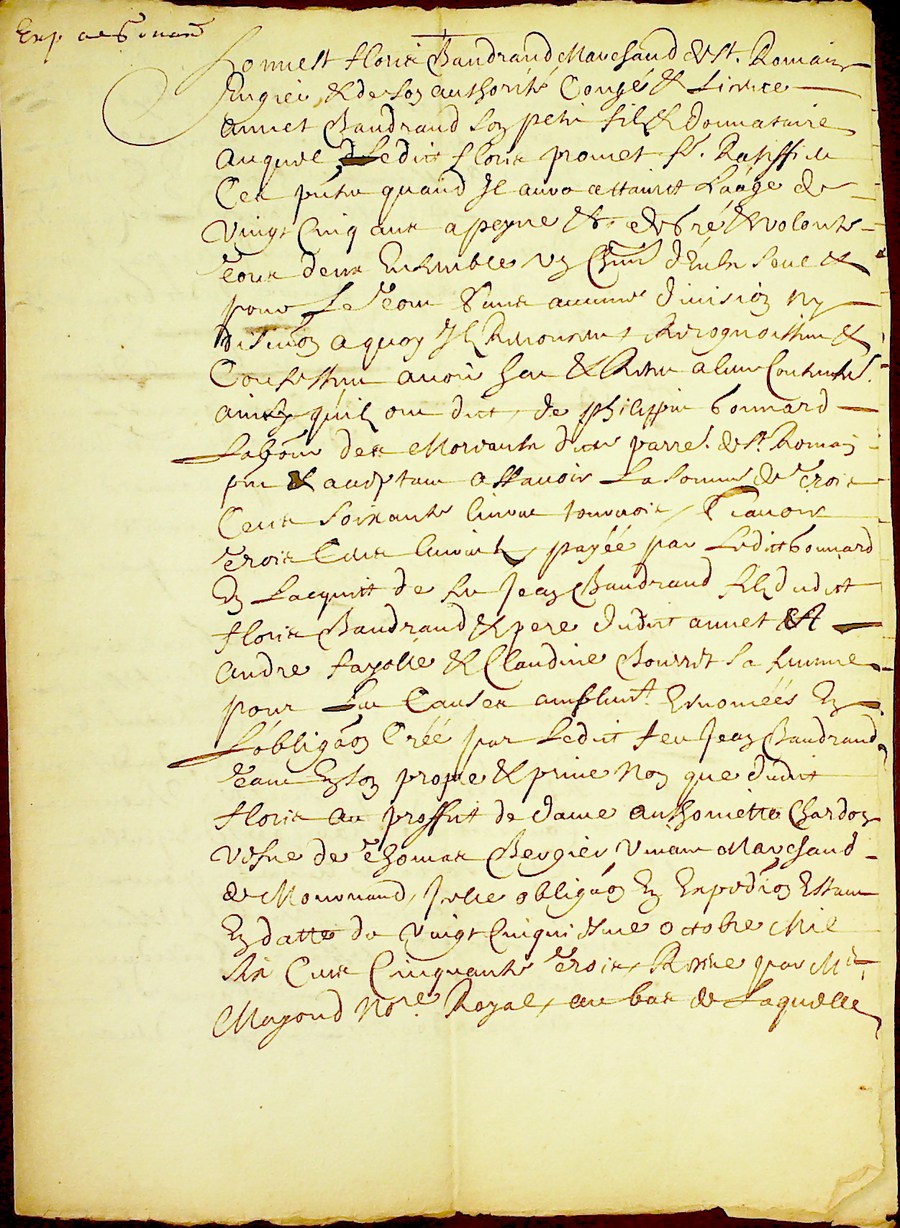 Exp aebonard
honnest floris Baudrand Marchand de St. Romain
en gier, & de son authorité Congé & licence
annet Baudrand son petit filz & donnataire
auquel ledict floris promet fe. Ratiffie
Ces pntes quand Il aura attainct laage de
vingt Cinq ans a peyne &c. de gré & volonté
tous deux Ensemble un Chun d'Eulx seul &
pour le tout sans aucune division ny
discution a quoy Ilz Renoncent, Recognoissent &
Confessent avoir heu & Receu a leur Contentemt.
ainsy qu'ilz ont dict, de philippe bonnard
labour des dicte parre. de St. Romain
pnt & acceptant assavoir la somme de trois
Cens soixante livres tournois, scavoir
trois Cens livres, payéé par ledict bonnard
En l'acquict de feu Jean Baudrand filz dudict
floris Baudrand & pere dudict annet A
andre fayolle & Claudine Bourrit sa femme
pour les Causes amplemt. Enonéés En
l'obligaon Créé par ledict feu Jean Baudrand,
tant En son propre & prive nom que dudict
floris au proffict de dame anthoinette Chardon
vefve de thomas Bergier vivant Marchand
de Mournand, Icelle obligaon En Expedion Estant
En datte du vingt Cinquiesme octobre Mil
six Cens Cinquante trois, Receue par Me.
Mayoud Nore. Royal, au bas de laquelle